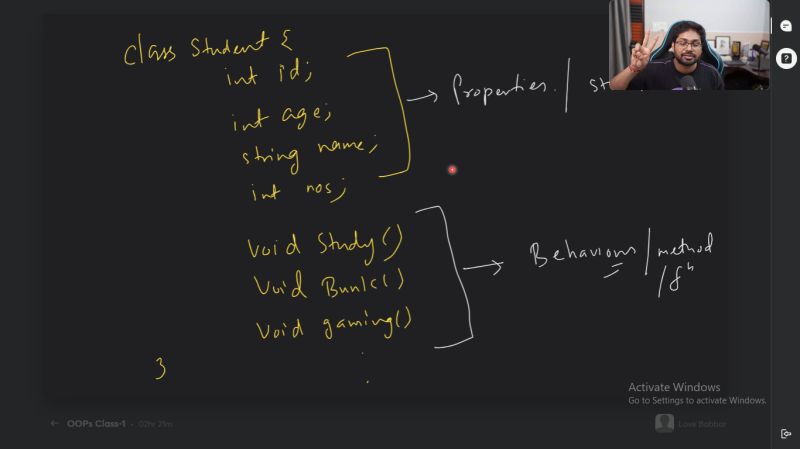 class Student {
int id;
int age;
string name;
int nos;
→ Properties /
void Study()
void Bunk()
void gaming()
→ Behaviours / method
/ fⁿ
}
Activate Windows
Go to Settings to activate Windows.
OOPs Class-1 • 02hr 21m
Love Babbar